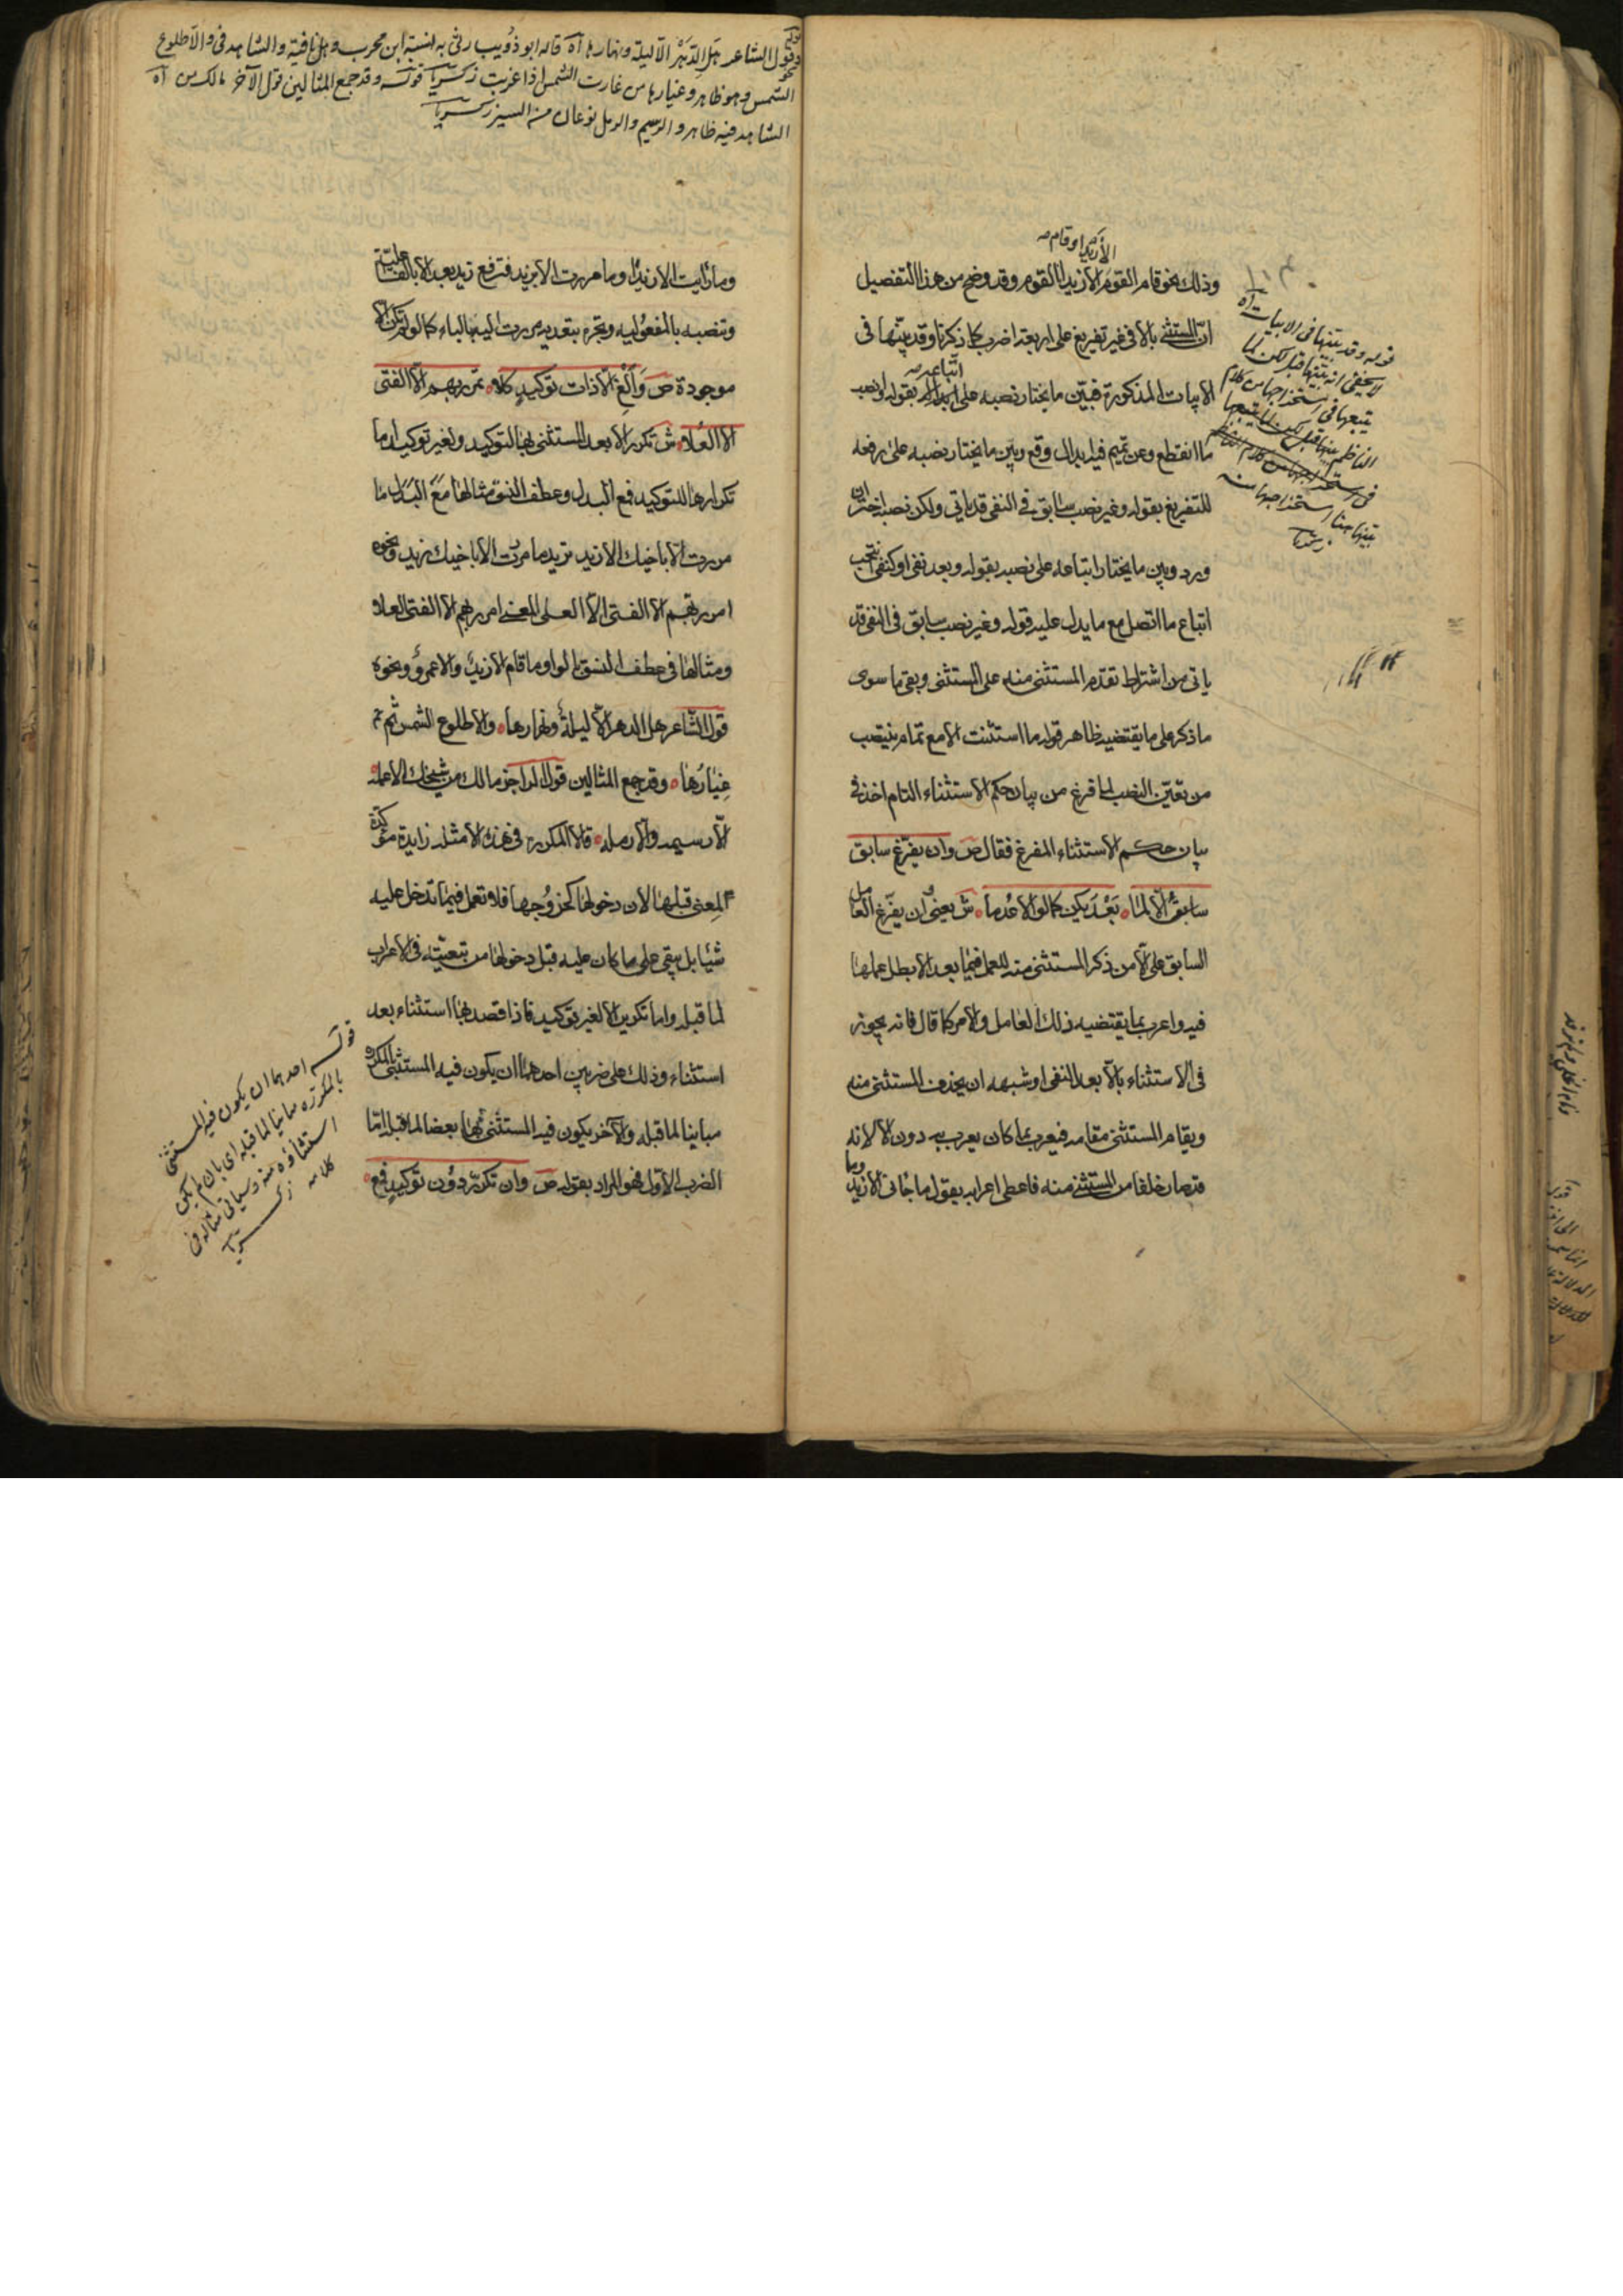 الا زيد او قام صح
وذلك نحو قام القوم الا زيدا القوم وقد وضح من هذا التفصيل
انّ المستثنى بالا فى غير تفريغ على اربعة اضرب كما ذكرنا وقد بيّنها فى
اتباعه صح
الابيات المذكورة فبيّن ما يختار نصبه على بقوله وانصب
ما انقطع وعن تميم فيه ابدال وقع وبين ما يختار نصبه على رفعه
للتفريغ بقوله وغير نصب سابق فى النفى قد ياتى ولكن نصبه اختر ان
ورد وبين ما يختار اتباعه على نصبه بقوله وبعد نفى او كنفى انتخب
اتباع ما اتصل مع ما يدل عليه قوله وغير نصب سابق فى النفى قد
ياتى من اشتراط تقدّم المستثنى منه على المستثنى وبقى ما سوى
ما ذكر على ما يقتضيه ظاهر قوله ما استثنت الا مع تمام ينتصب
من تعيّن النصب لما فرغ من بيان حكم الاستثناء التام اخذ فى
بيان حكم الاستثناء المفرغ فقال ص وان يفرّغ سابق
سابقٌ الّا لما بَعْدُ يكن كما لو الا عُدما ش يعنى ان يفرّغ العامل
السابق على الّا من ذكر المستثنى منه للعمل فيما بعد الا بطل عملها
فيه واعرب بما يقتضيه ذلك العامل والامر كما قال فانه يجوز
فى الاستثناء بالّا بعد النفى او شبهه ان يحذف المستثنى منه
ويقام المستثنى مقامه فيعرب بما كان يعرب به دون الا لانه
قد صار خلفا من المستثنى منه فاعطى اعرابه يقول ما جانى الا زيد وما
قوله وقد بيّنها فى الابيات اه
لا يخفى انه بيّنها قبل لكن لما
يتبعها فى استخراجها من كلام
الناظم بيّنها
بيّنها هنا استخراجها منه
قول الشاعر هل الدّهر الّا ليلة ونهارها اه قاله ابو ذؤيب رثى به وهل نافية والشاهد فى والا طلوع
الشمس وهو ظاهر وغيارها من غارت الشمس اذا غربت زكريا قوله وقد جمع المثالين قول الآخر مالك من اه
الشاهد فيه ظاهر والرسيم والرمل نوعان من السير زكريا
وما رايت الا زيدًا وما مررت الا بزيد فترفع زيد بعد الا بالفاعلية
وتنصبه بالمفعولية وتجره بتعدية مررت اليه بالباء كما لو لم تكن الا
موجودة ص وَاَلْغِ الّا ذات توكيدٍ كلا تمرر بهم الّا الفتى
الا العُلا ش تكرر الا بعد المستثنى بها لتوكيد ولغير توكيد اما
تكرارها للتوكيد فمع البدل وعطف النسق مثالها مَعَ البَدَل ما
مررت الّا باخيك الا زيد تريد ما مررت الا باخيك زيد ونحوه
امرر بهم الا الفتى الّا العلى المعنى امرر بهم الا الفتى العلا
ومثالها فى عطف النسق بالواو ما قام الا زيدٌ والا عمروٌ ونحوه
قول الشاعر هل الدهر الّا ليلةٌ ونهارها والا طلوع الشمس ثم
غِيَارُها وقد جمع المثالين قول الراجز مالك من شيخك الا عمله
الّا رسيمه والا رمله فالا المكررة فى هذه الامثلة زايدة مؤكدة
المعنى قبلها لان دخولها كخروجها فلا تعمل فيما تدخل عليه
شيئا بل يبقى على ما كان عليه قبل دخولها من تبعيّته فى الاعراب
لما قبله واما تكرير الا لغير توكيد فاذا قصد بها استثناء بعد
استثناء وذلك على ضربين احدهما ان يكون فيه المستثنى بالمكررة
مباينا لما قبله والآخر يكون فيه المستثنى بها بعضا لما قبله امّا
الضرب الاوّل فهو المراد بقوله ص وان تكرّر دُون توكيدٍ فمع
قوله احدهما ان يكون فيه المستثنى
بالمكررة مباينا لما قبله اى بان لم يكن
استثناؤه منه وسياتى مثاله فى
كلامه زكريا